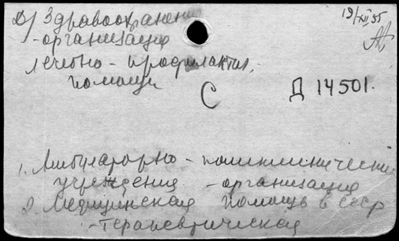 Д) Здравоохранение
- организация
лечебно - профилактич.
помощи
19/XII 55
С
Д 14501.
1. Амбулаторно - поликлинические
учреждения - организация
2. Медицинская помощь в СССР
- терапевтическая